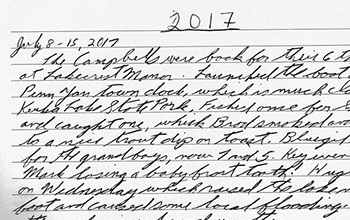 2017
July 8-15, 2017
The Campbells were back for their 6 t
at Lakecrest Manor. Launched the boat
Penn Yan town dock, which is much cl
Keuka Lake State Park. Fished once for
and caught one, which Brad smoked and
to a nice trout dip on toast. Bluegi
for the grandboys, now 7 and 5. Key even
Mark losing a baby front tooth. Hug
on Wednesday which raised the lake
foot and caused some local flooding